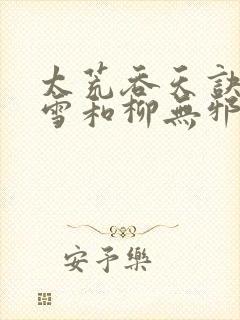 太荒吞天訣
雪和柳無邪
安予樂